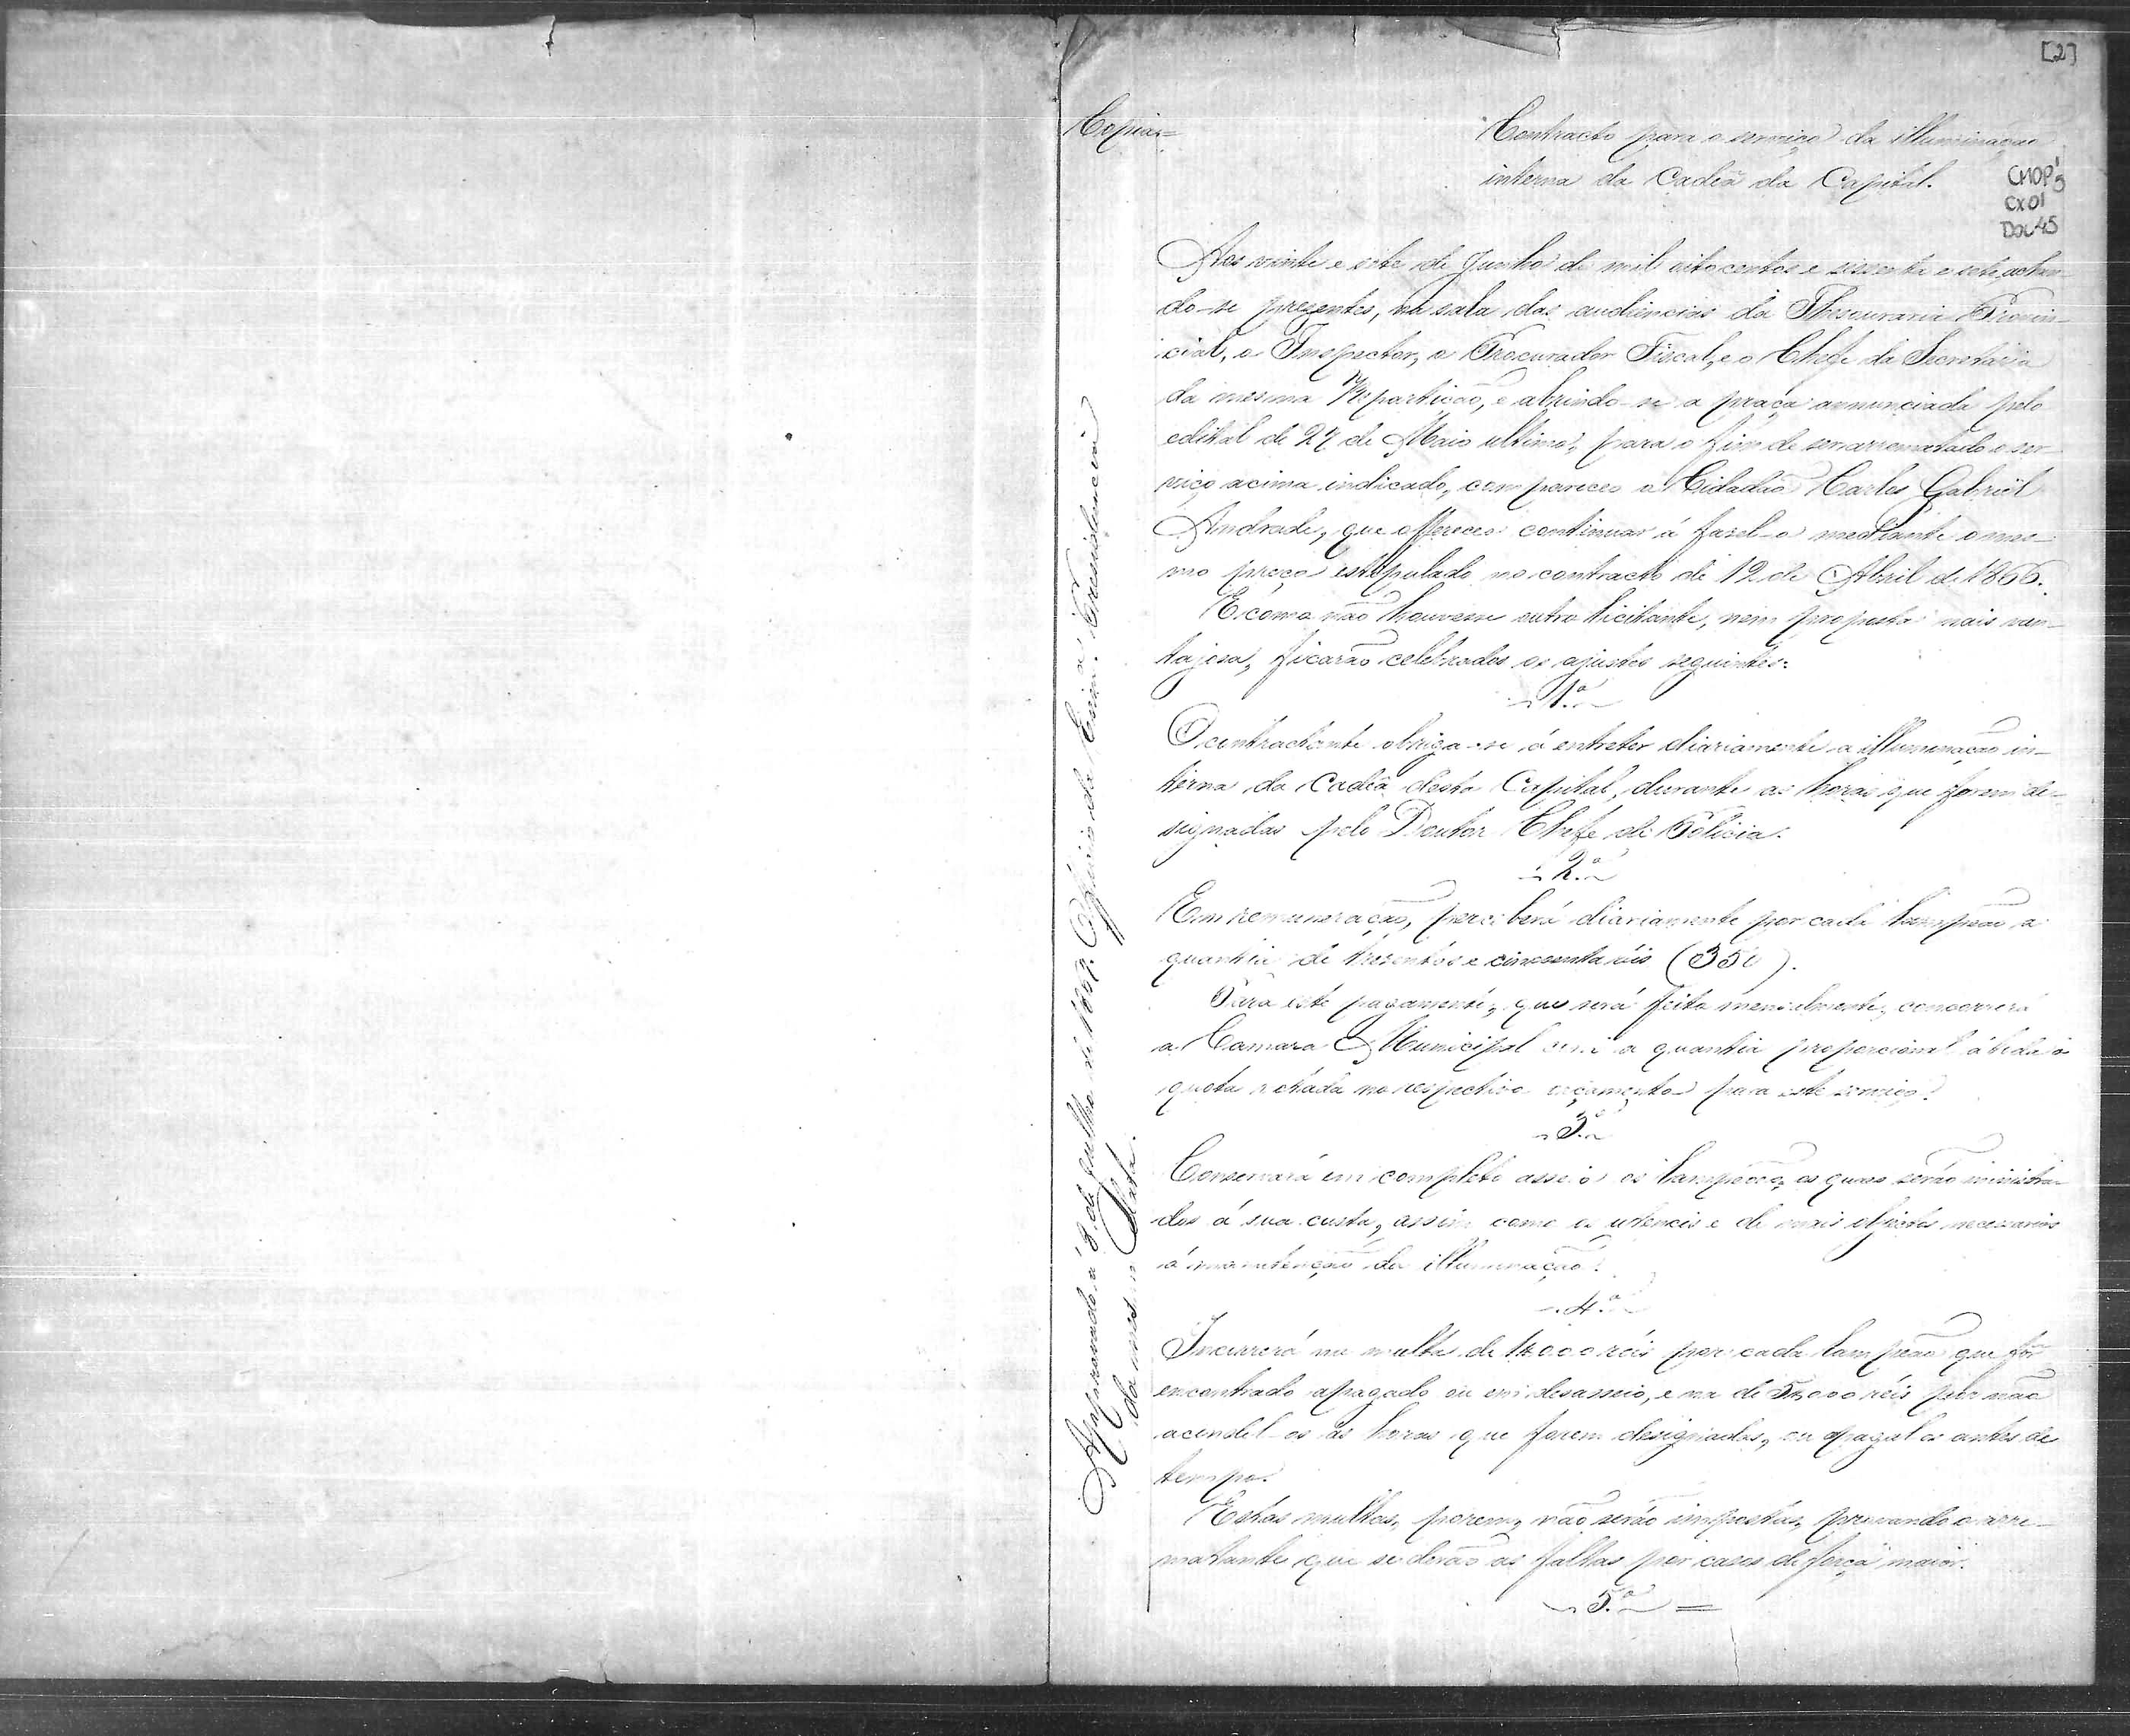 [2]
Copia=
Contracto para o serviço da illuminação
interna da Cadêa da Capital.
CMOP
Cx 01
Doc 45
Aos vinte e sete de Junho de mil oitocentos e sessenta e sete, achan-
do-se presentes, na sala das audiencias da Thesouraria Provin-
cial, o Inspector, o Procurador Fiscal, e o Chefe da Secretaria
da mesma Repartição, e abrindo-se a praça annunciada pelo
edital de 27 de Maio ultimo, para o fim de ser arrematado o ser-
viço acima indicado, compareceo o Cidadão Carlos Gabriel
Andrade, que offereceo continuar á fasel-o mediante o mes-
mo preço estipulado no contracto de 12 de Abril de 1866.
E como não houvesse outro licitante, nem proposta mais van-
tajosa, ficarão celebrados os ajustes seguintes:
1.ª
O contractante obriga-se á entreter diariamente a illuminação in-
terna da Cadêa desta Capital, durante as horas que forem de-
signadas pelo Doutor Chefe de Policia.
2.ª
Em remuneração, perceberá diariamente por cada lampeão a
quantia de tresentos e cincoenta réis (350).
Para este pagamento, que será feito mensalmente, concorrerá
a Camara Municipal com a quantia proporcional á
quota votada no respectivo orçamento para este serviço.
3.ª
Conservará em completo asseio os lampeões, os quaes serão ministra-
dos á sua custa, assim como os utencis e de mais objectos necessarios
á manutenção da illuminação.
4.ª
Incorrerá na multa de 1$000 réis por cada lampeão que fôr
encontrado apagado ou em desasseio, e na de 5$000 réis por não
acendel-os ás horas que forem designadas, ou apagal-os antes de
tempo.
Estas multas, porem, não serão impostas, provando o arre-
matante que se derão as faltas por casos de força maior.
5.ª
Approvado á 8 de Julho de 1867. Officio da Exm.ª Presidencia
da mesma Data.